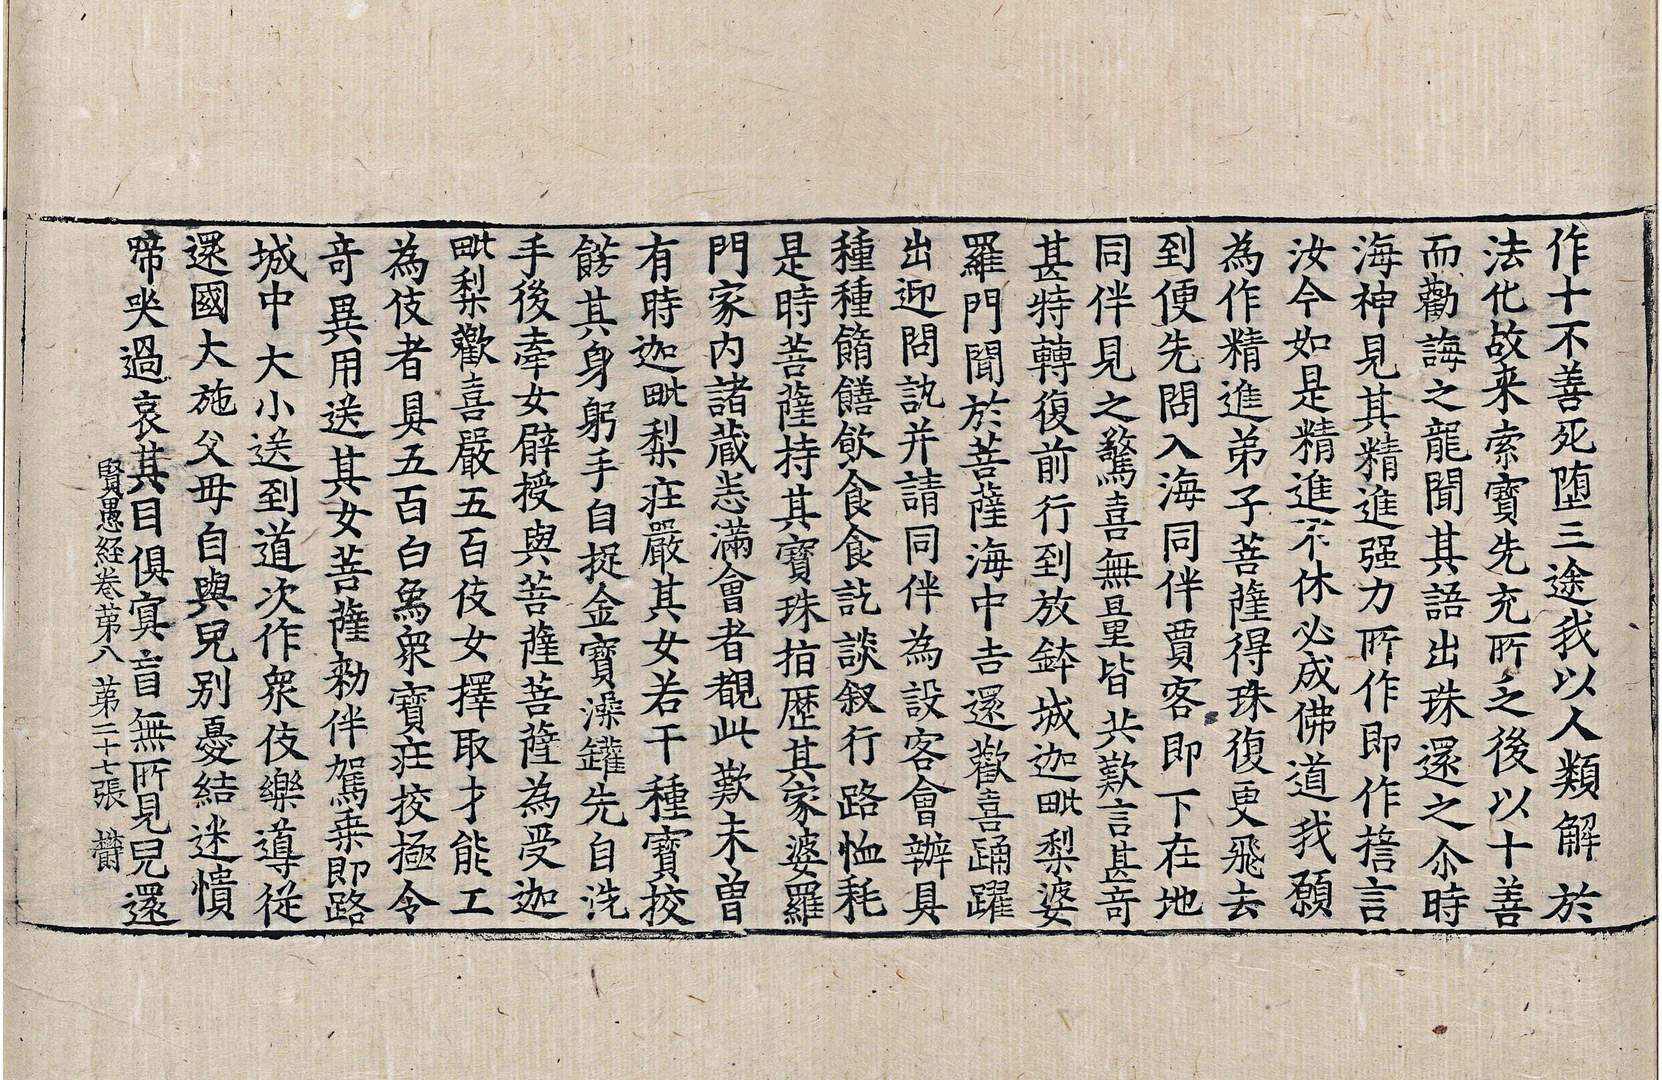 作十不善死堕三途我以人類解於
法化故来索寶先充所乏後以十善
而勸誨之龍聞其語出珠還之尒時
海神見其精進强力所作即作擔言
汝今如是精進不休必成佛道我願
為作精進弟子菩薩得珠復更飛去
到便先問入海同伴賈客即下在地
同伴見之驚喜無量皆共歎言甚奇
甚特轉復前行到放鉢城迦毗梨婆
羅門聞於菩薩海中吉還歡喜踊躍
出迎問訊并請同伴為設客會辦具
種種餚饍飲食食訖談叙行路恤耗
是時菩薩持其寶珠拍歷其家婆羅
門家内諸蔵悉滿會者覩此歎未曽
有時迦毗梨莊嚴其女若干種寶挍
餝其身躬手自捉金寶澡罐先自洗
手後牽女臂授與菩薩菩薩為受迦
毗梨歡喜嚴五百伎女擇取才能工
為伎者具五百白烏衆寶莊挍極令
奇異用送其女菩薩勑伴駕乗即路
城中大小送到道次作衆伎樂導從
還國大施父母自與兒别憂結迷憒
啼哭過哀其目俱冥盲無所見兒還
賢愚経卷苐八 苐二十七張 欝